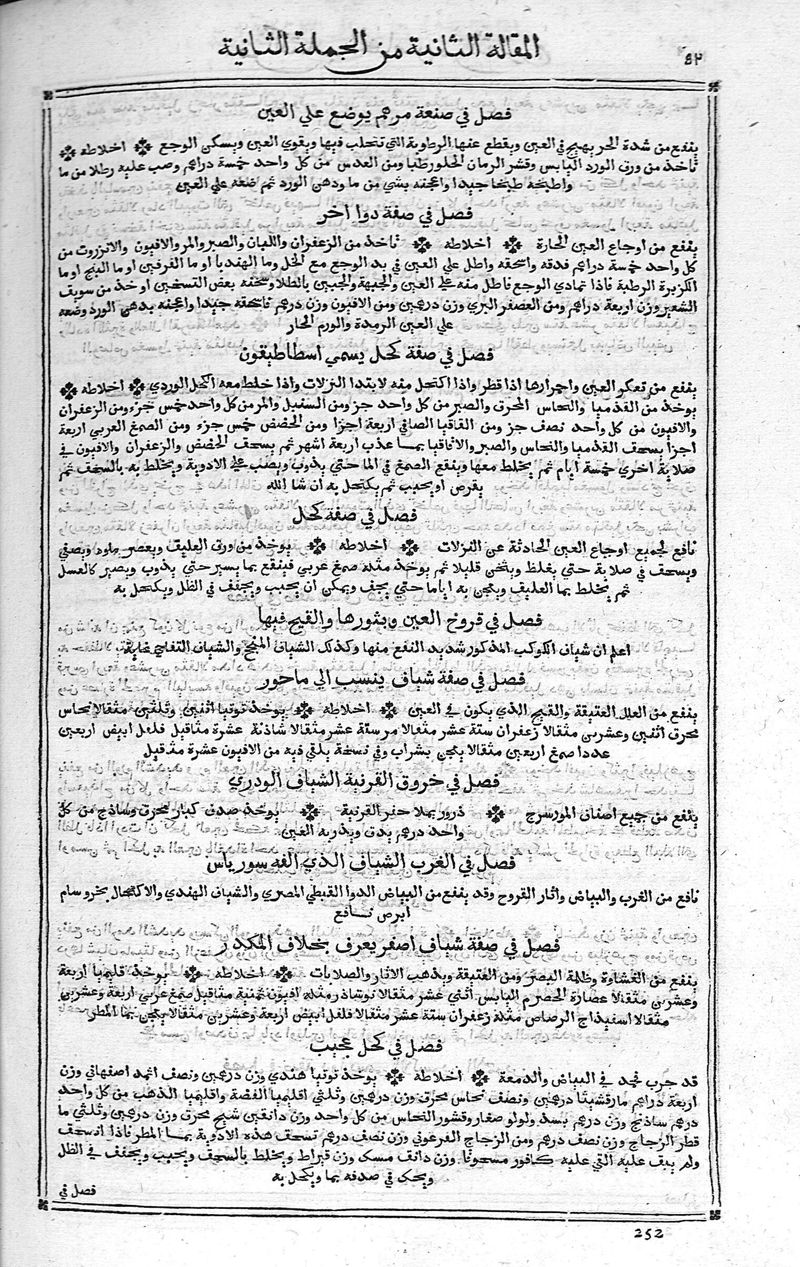 المقالة الثانية من الجملة الثانية
٤٢
فصل في صنعة مرهم يوضع علي العين
ينفع من شدة الحر بهيج في العين ويقطع عنها الرطوبة التي تتحلب فيها ويقوي العين ويسكن الوجع اخلاطه
تاخذ من ورق الورد اليابس وقشر الرمان الحلو رطبا ومن العدس من كل واحد خمسة دراهم وصب عليه رطلا من ما
واطبخه طبخا جيدا واعجنه بشي من ما ودهن الورد ثم ضعه علي العين
فصل في صفة دوا اخر
ينفع من اوجاع العين الحارة اخلاطه تاخذ من الزعفران واللبان والصبر والمر والافيون والانزروت من
كل واحد خمسة دراهم فدقه واسحقه واطل علي العين في بد الوجع مع الخل وما الهندبا او ما القرفين او ما البنج او ما
الكزبرة الرطبة فاذا تمادي الوجع فاطل منه علي العين والجبهة والجبين بالطلا وسخنه بعض التسخين او خذ من سويف
الشعير وزن اربعة دراهم ومن العصفر البري وزن درهمين ومن الافيون وزن درهم تاسحقه جيدا واعجنه بدهن الورد وضعه
علي العين الرمدة والورم الحار
فصل في صفة كحل يسمي اسطاطيقون
ينفع من تعكر العين واحمرارها اذا قطر واذا اكتحل منه لابتدا النزلات واذا خلط معه الكحل الوردي اخلاطه
يوخذ من القدميا والنحاس المحرق والصبر من كل واحد جز ومن السنبل والمر من كل واحد خمس جزء ومن الزعفران
والافيون من كل واحد نصف جز ومن القاقيا الصافي اربعة اجزا ومن الحضض خمس جزء ومن الصمغ العربي اربعة
اجزا يسحف القدميا والنحاس والصبر والاقاقيا بمسا عذب اربعة اشهر ثم يسحف الحضض والزعفران والافيون في
صلاية اخري خمسة ايام ثم يخلط معها وينفع الصمغ في الما حتي يذوب ويصب علي الادوية ويخلط به بالسحف ثم
يقرص او يحبب ثم يكتحل به ان شا الله
فصل في صفة كحل
نافع لجميع اوجاع العين الحادثة عن النزلات اخلاطه يوخذ من ورق العليف ويعصر ماوه ويصفي
ويسحف في صلاية حتي يغلظ ويثخن قليلا ثم يوخذ مثله صمغ عربي فينقع بما يسير حتي يذوب ويصير كالعسل
ثم يخلط بما العليف ويعجن به اياما حتي يجف ويمكن ان يحبب ويجفف في الظل ويكتحل به
فصل في قروح العين وبثورها والقيح فيها
اعلم ان شياف الكوكب المذكور شديد النفع منها وكذلك الشياف المنجح والشياف التفاحي غاية
فصل في صفة شياف ينسب الي ماحور
ينفع من العلل العتيقة والقيح الذي يكون في العين اخلاطه يوخذ توتيا اثنين وثلثين مثقالا نحاس
محرق اثنين وعشرين مثقالا زعفران ستة عشر مثقالا مر ستة عشر مثقالا شاذنة عشرة مثاقيل فلفل ابيض اربعين
عددا صمغ اربعين مثقالا يعجن بشراب وفي نسخة يلقي فيه من الافيون عشرة مثقيل
فصل في خروق القرنية الشياف الودري
ينفع من جميع اصناف المورسرج ذرور يملا حفر القرنية يوخذ صدف كبار محرق وساذج من كل
واحد درهم يدق ويذر به العين
فصل في الغرب الشياف الذي الفه سورياس
نافع من الغرب والبياض واثار القروح وقد ينفع من البياض الدوا القبطي المصري والشياف الهندي والاكتحال بخرو سام
ابرص نافع
فصل في صفة شياف اصفر يعرف بخلاف المكدر
ينفع من الغشاوة وظلمة البصر ومن العتيقة ويذهب الاثار والصلابات اخلاطه يوخذ قليميا اربعة
وعشرين مثقالا عصارة الحصرم اليابس اثني عشر مثقالا نوشاذر مثله افيون ثمنية مثاقيل صمغ عربي اربعة وعشرين
مثقالا اسفيذاج الرصاص مثله زعفران ستة عشر مثقالا فلفل ابيض اربعة وعشرين مثقالا يعجن بما المطر
فصل في كحل عجيب
قد جرب فحمد في البياض والدمعة اخلاطه يوخذ توتيا هندي وزن درهمين ونصف اثمد اصفهاني وزن
اربعة دراهم مارقشيثا درهمين ونصف نحاس محرق وزن درهمين وثلثي اقليميا الفضة واقليميا الذهب من كل واحد
درهم ساذنج وزن درهم بسد ولولو صغار وقشور النحاس من كل واحد وزن دانقين شبح محرق وزن درهمين وثلثي ما
قطر الزجاج وزن نصف درهم ومن الزجاج الفرعوني وزن نصف درهم تسحف هذه الادوية بمسا المطر فاذا انسحف
ولم يبف عليه القي عليه كافور مسحوقا وزن دانف مسك وزن قيراط ويخلط بالسحف ويحبب ويجفف في الظل
ويحك في صدفه بما ويكحل به
فصل في
252